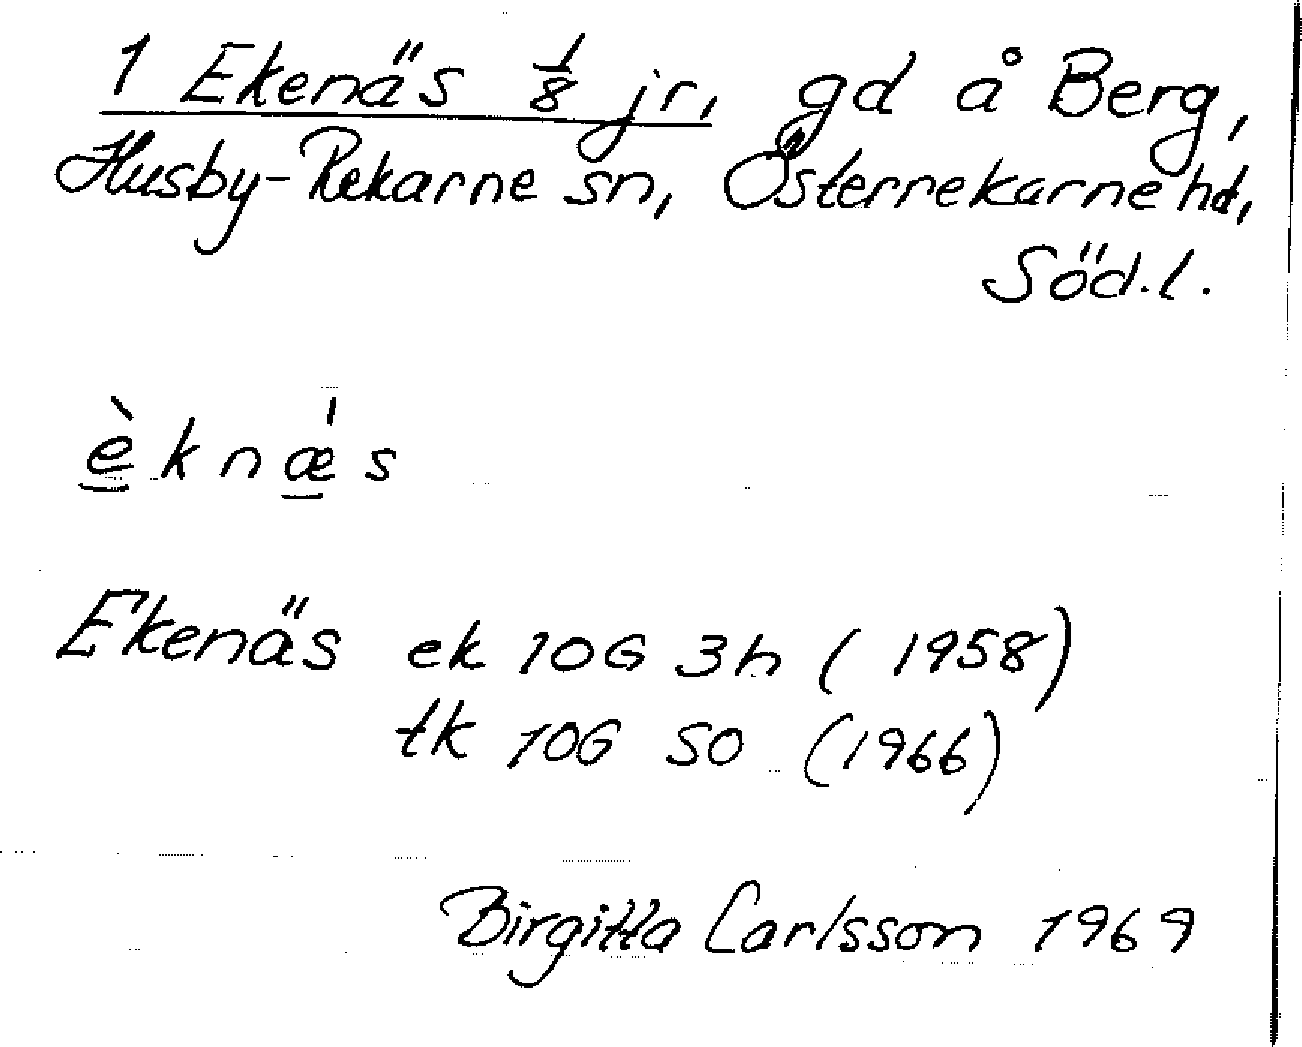 1 Ekenäs 1/8 jr, gd å Berg,
Husby-Rekarne sn, Österrekarne hd,
Söd.l.
èknǽs
Ekenäs ek 10G 3h (1958)
tk 10G SO (1966)
Birgitta Carlsson 1969